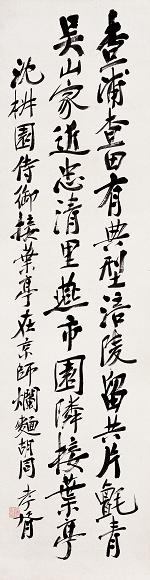 查浦查田有典型涪陵留共片氈青
吳山家近忠清里燕市園隣接葉亭
沈椒園侍御接葉亭在京師爛麵胡同 孝胥